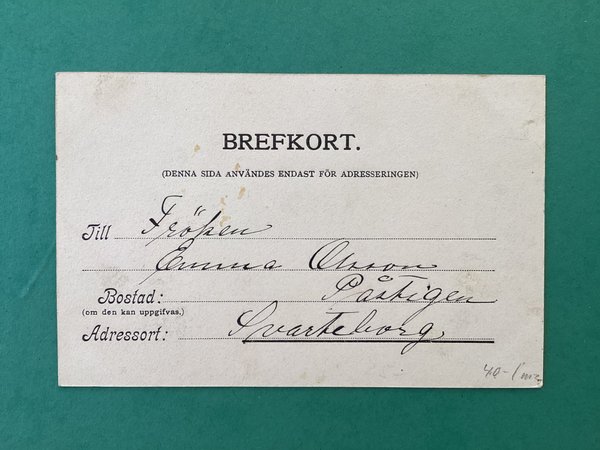 BREFKORT.
(DENNA SIDA ANVÄNDES ENDAST FÖR ADRESSERINGEN)
Till Fröken
Emma Olsson
Bostad: Påstigen
(om den kan uppgifvas.)
Adressort: Svarteborg
40-/